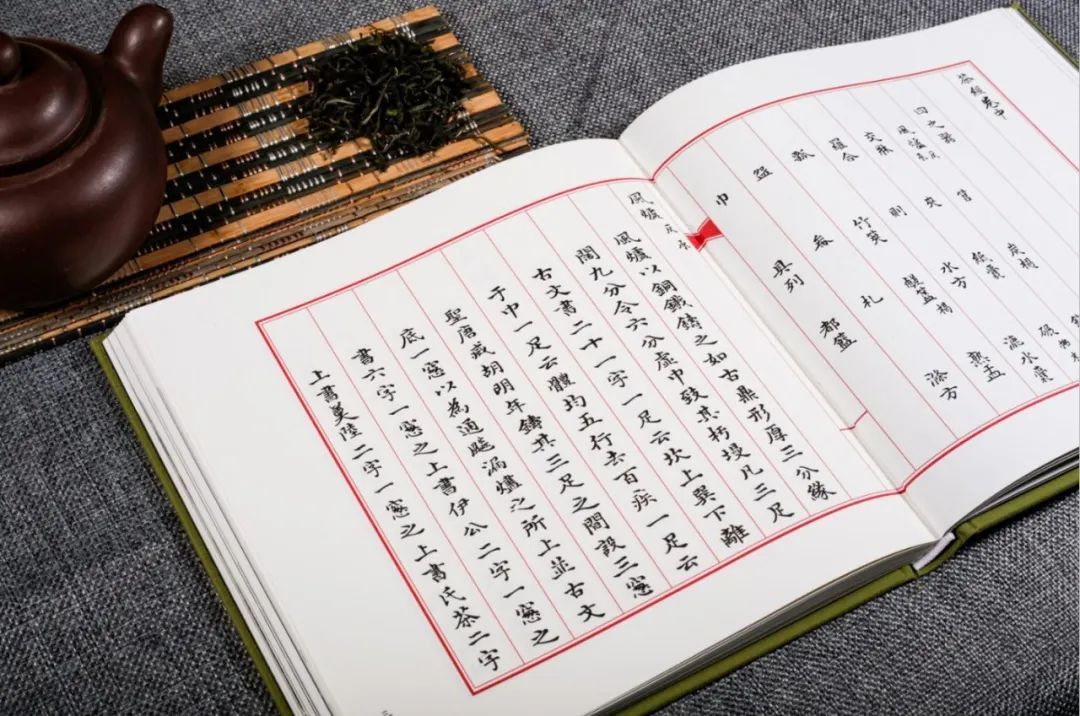 茶經卷中
四之器
風爐灰承 筥 炭檛
交床 夾 紙囊 碾拂末
羅合 則 水方 漉水囊
瓢 竹筴 鹺簋揭 熟盂
盌 畚 札 滌方
巾 具列 都籃
風爐灰承
風爐以銅鐵鑄之如古鼎形厚三分緣
闊九分令六分虛中致其杇墁凡三足
古文書二十一字一足云坎上巽下離
于中一足云體均五行去百疾一足云
聖唐滅胡明年鑄其三足之間設三窻
底一窻以為通飈漏燼之所上並古文
書六字一窻之上書伊公二字一窻之
上書羹陸二字一窻之上書氏茶二字
三